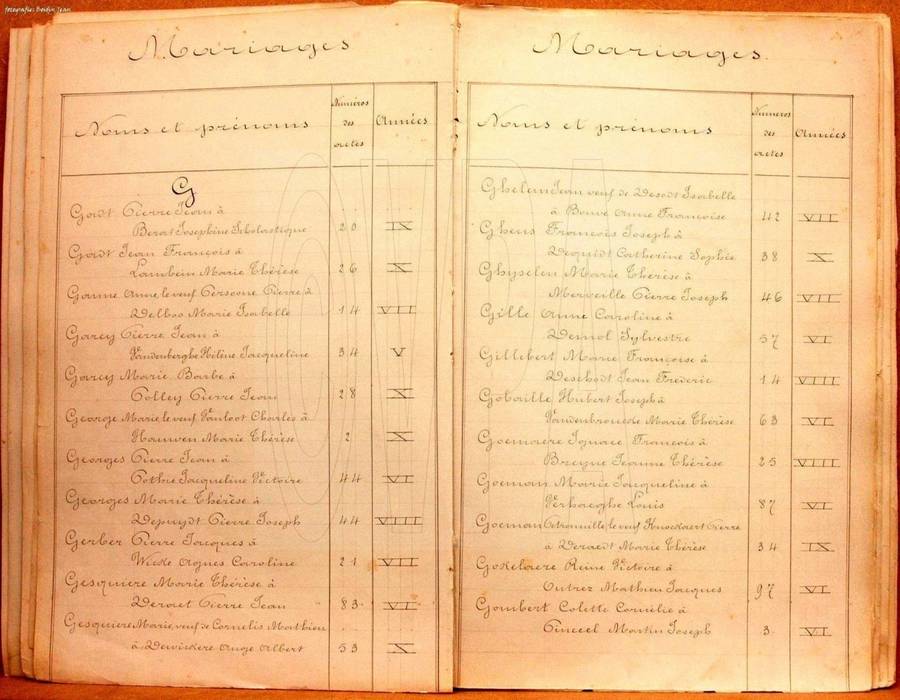 fotografie: Boidin Jean
Mariages
Noms et prénoms
Numéros
des
actes
Années
G
Gadt Pierre Jean à
Berat Josephine Scholastique 20 IX
Gadt Jean François à
Lambein Marie Thérèse 26 X
Ganne Anne le veuf Persone Pierre à
Delbos Marie Isabelle 14 VII
Garcy Pierre Jean à
Vandenberghe Hélène Jacqueline 34 V
Garcy Marie Barbe à
Polley Pierre Jean 28 X
George Marie le veuf Vanloot Charles à
Hauwen Marie Thérèse 2 X
Georges Pierre Jean à
Pothé Jacqueline Victoire 44 VI
Georges Marie Thérèse à
Depuydt Pierre Joseph 44 VIII
Gerber Pierre Jacques à
Wicke Agnes Caroline 21 VII
Gesquiere Marie Thérèse à
Derout Pierre Jean 83 VI
Gesquiere Marie, veuf de Cornelis Mathieu
à Dewickere Ange Albert 53 X
Mariages
Noms et prénoms
Numéros
des
actes
Années
Ghelein Jean veuf de Desodt Isabelle
à Bouve Anne Françoise 42 VII
Gheus François Joseph à
Dequidt Catherine Sophie 38 X
Ghyselen Marie Thérèse à
Merveille Pierre Joseph 46 VII
Gille Anne Caroline à
Demol Sylvestre 57 VI
Gillibert Marie Françoise à
Deschodt Jean Frederic 14 VIII
Gobaille Hubert Joseph à
Vandenbroucke Marie Thérèse 63 VI
Goemaere Ignace François à
Breyne Jeanne Thérèse 25 VIII
Goeman Marie Jacqueline à
Verhaeghe Louis 87 VI
Goeman le veuf Knockaert Pierre
à Deraedt Marie Thérèse 34 IX
Gokelaere Reine Victoire à
Outrez Mathieu Jacques 97 VI
Gombert Colette Cornélie à
Pinceel Martin Joseph 3 VI